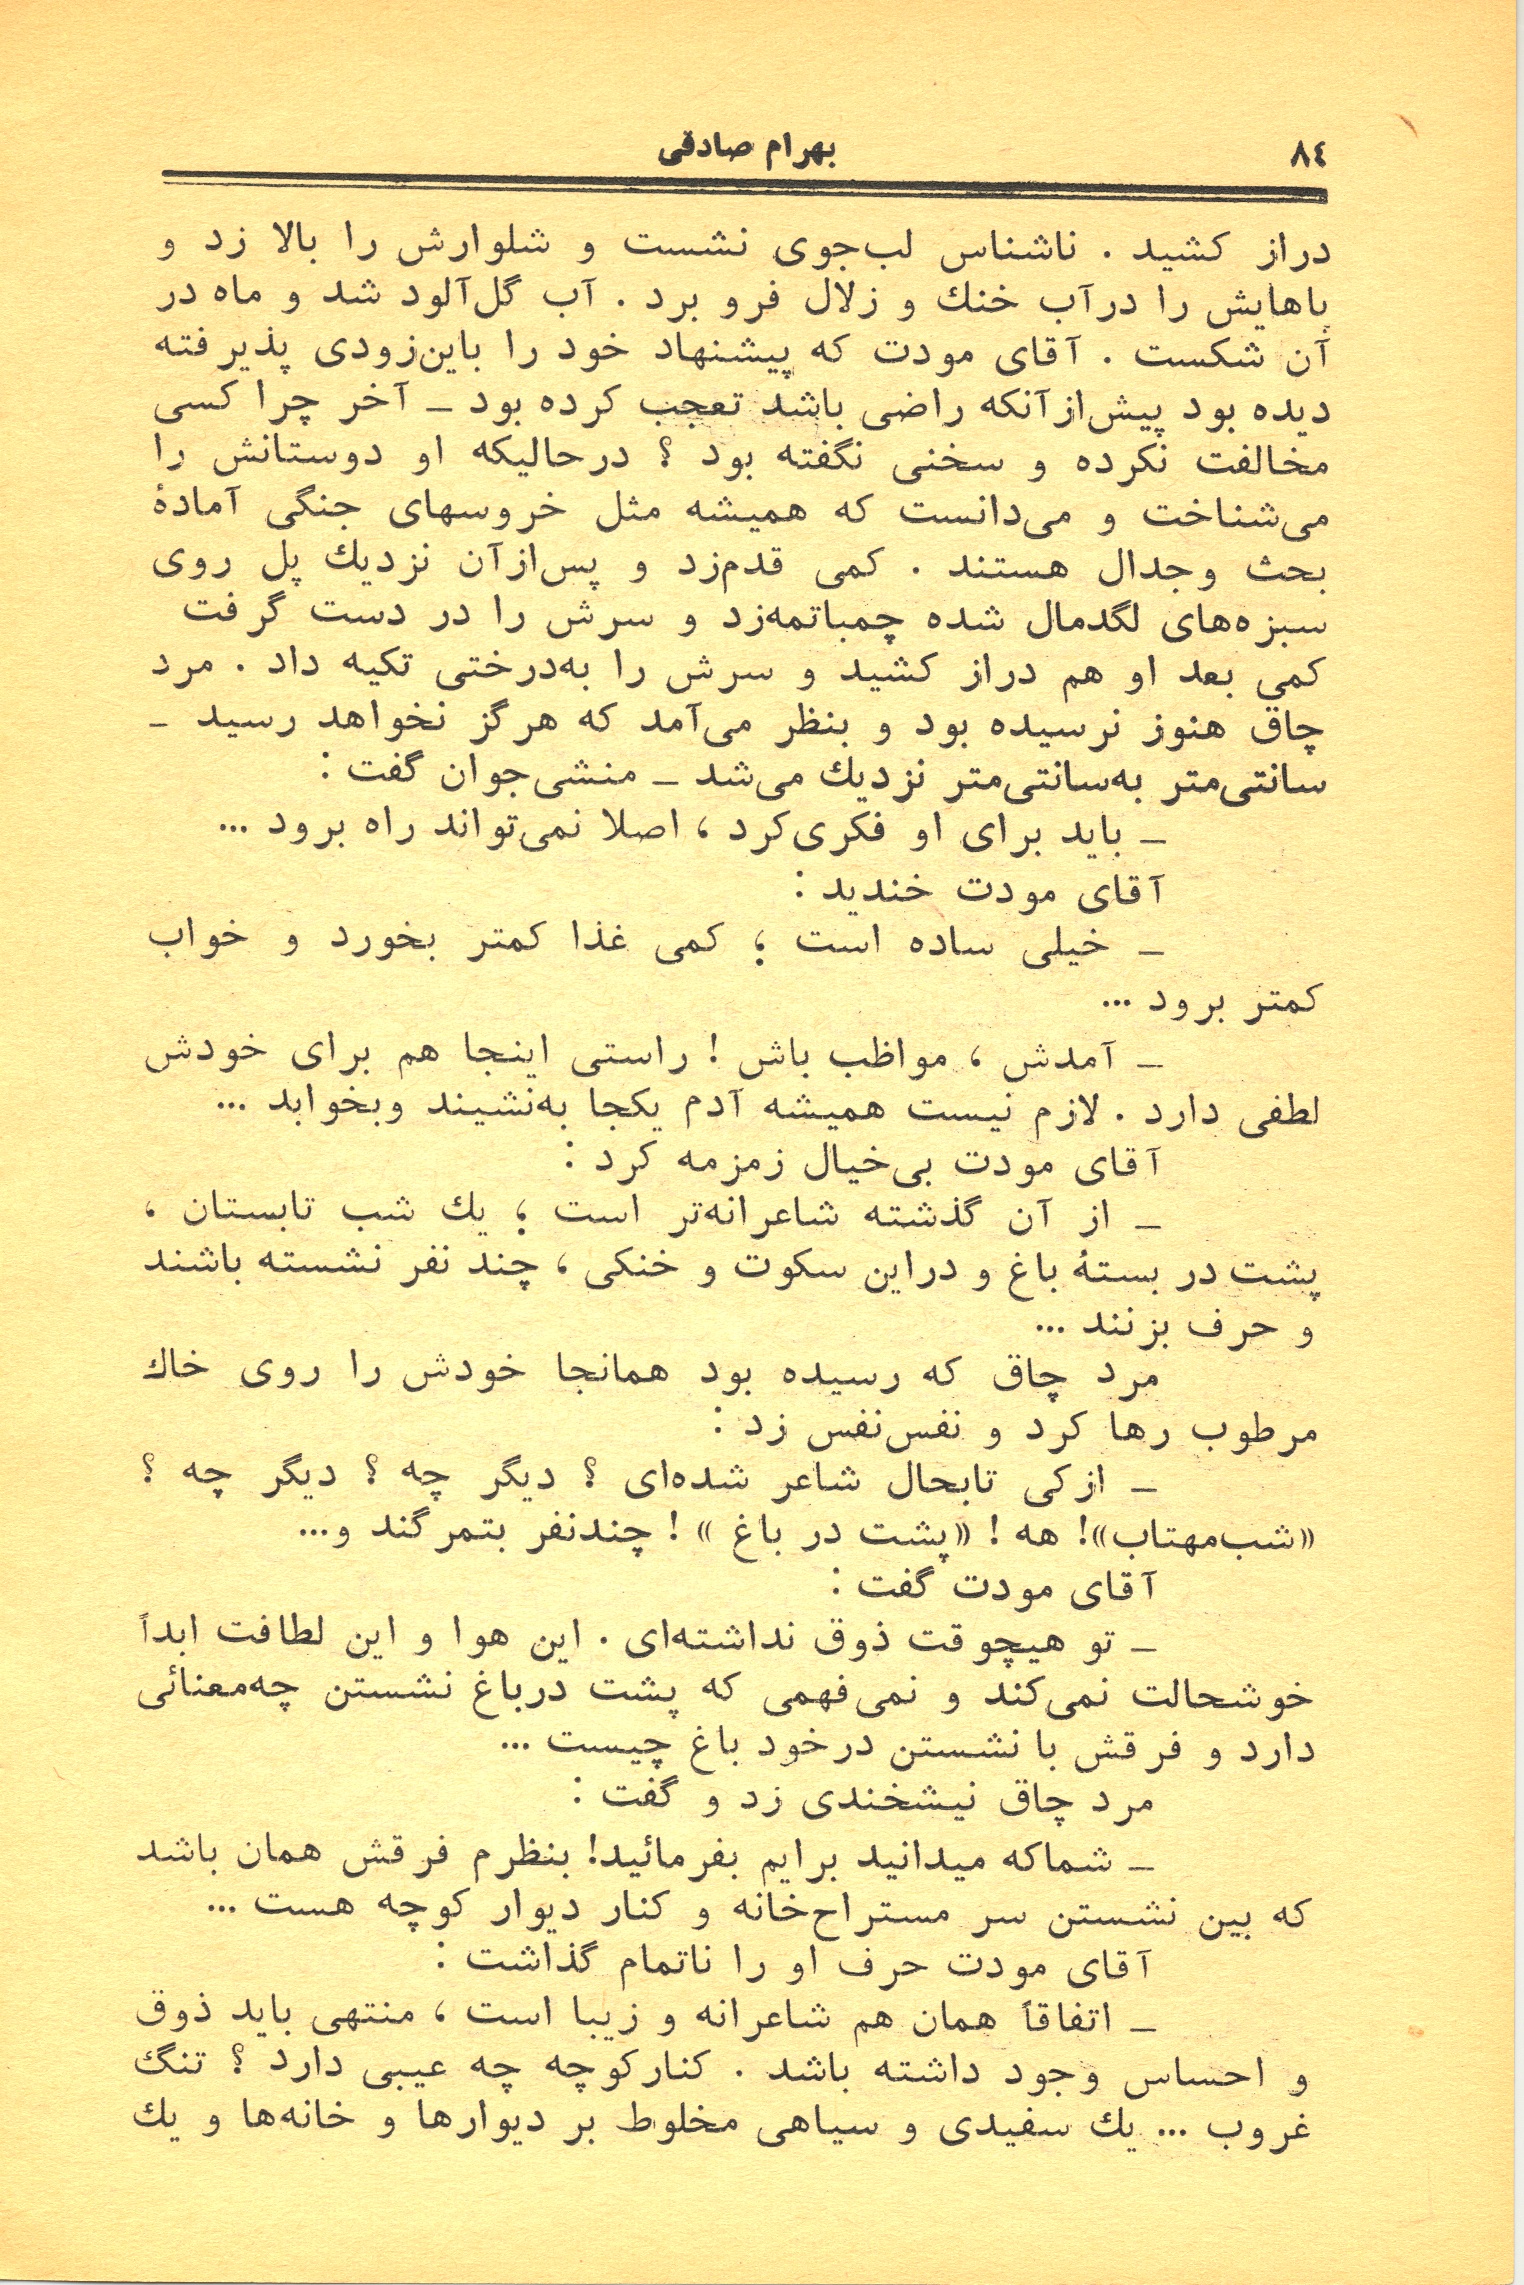 ۸٤
بهرام صادقی
دراز کشید . ناشناس لب‌جوی نشست و شلوارش را بالا زد و
پاهایش را درآب خنك و زلال فرو برد . آب گل‌آلود شد و ماه در
آن شکست . آقای مودت که پیشنهاد خود را باین‌زودی پذیرفته
دیده بود پیش‌ازآنکه راضی باشد تعجب کرده بود ــ آخر چرا کسی
مخالفت نکرده و سخنی نگفته بود ؟ درحالیکه او دوستانش را
می‌شناخت و می‌دانست که همیشه مثل خروسهای جنگی آمادهٔ
بحث وجدال هستند . کمی قدم‌زد و پس‌ازآن نزدیك پل روی
سبزه‌های لگدمال شده چمباتمه‌زد و سرش را در دست گرفت
کمی بعد او هم دراز کشید و سرش را به‌درختی تکیه داد . مرد
چاق هنوز نرسیده بود و بنظر می‌آمد که هرگز نخواهد رسید ــ
سانتی‌متر به‌سانتی‌متر نزدیك می‌شد ــ منشی‌جوان گفت :
ــ باید برای او فکری‌کرد ، اصلا نمی‌تواند راه برود ...
آقای مودت خندید :
ــ خیلی ساده است ؛ کمی غذا کمتر بخورد و خواب
کمتر برود ...
ــ آمدش ، مواظب باش ! راستی اینجا هم برای خودش
لطفی دارد . لازم نیست همیشه آدم یکجا به‌نشیند وبخوابد ...
آقای مودت بی‌خیال زمزمه کرد :
ــ از آن گذشته شاعرانه‌تر است ؛ یك شب تابستان ،
پشت در بستهٔ باغ و دراین سکوت و خنکی ، چند نفر نشسته باشند
و حرف بزنند ...
مرد چاق که رسیده بود همانجا خودش را روی خاك
مرطوب رها کرد و نفس‌نفس زد :
ــ ازکی تابحال شاعر شده‌ای ؟ دیگر چه ؟ دیگر چه ؟
«شب‌مهتاب»! هه ! «پشت در باغ » ! چندنفر بتمرگند و...
آقای مودت گفت :
ــ تو هیچوقت ذوق نداشته‌ای . این هوا و این لطافت ابداً
خوشحالت نمی‌کند و نمی‌فهمی که پشت درباغ نشستن چه‌معنائی
دارد و فرقش با نشستن درخود باغ چیست ...
مرد چاق نیشخندی زد و گفت :
ــ شماکه میدانید برایم بفرمائید! بنظرم فرقش همان باشد
که بین نشستن سر مستراح‌خانه و کنار دیوار کوچه هست ...
آقای مودت حرف او را ناتمام گذاشت :
ــ اتفاقاً همان هم شاعرانه و زیبا است ، منتهی باید ذوق
و احساس وجود داشته باشد . کنارکوچه چه عیبی دارد ؟ تنگ
غروب ... یك سفیدی و سیاهی مخلوط بر دیوارها و خانه‌ها و یك